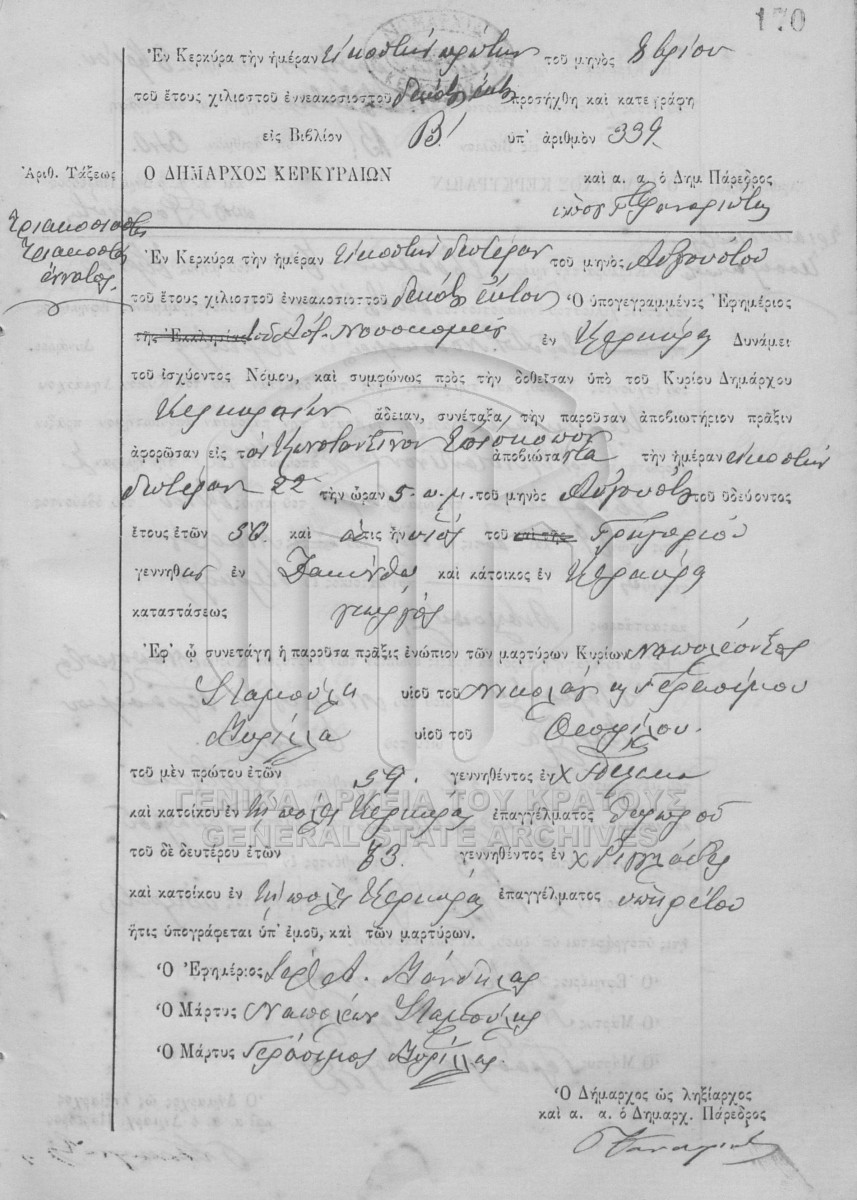 170
Ἐν Κερκύρᾳ τὴν ἡμέραν εἰκοστὴν πρώτην τοῦ μηνὸς 8βρίου
τοῦ ἔτους χιλιοστοῦ ἐννεακοσιοστοῦ δεκάτου ἕκτου προσήχθη καὶ κατεγράφη
εἰς Βιβλίον Β! ὑπ' ἀριθμὸν 339.
Ἀριθ. Τάξεως
Ο ΔΗΜΑΡΧΟΣ ΚΕΡΚΥΡΑΙΩΝ
καὶ α. α. ὁ Δημ Πάρεδρος
τριακοσιοστὸς
τριακοστὸς
ἔννατος.
Ἐν Κερκύρᾳ τὴν ἡμέραν εἰκοστὴν δευτέραν τοῦ μηνὸς Αὐγούστου
τοῦ ἔτους χιλιοστοῦ ἐννεακοσιοστοῦ δεκάτου ἕκτου Ὁ ὑπογεγραμμένος Ἐφημέριος
τῆς Ἐκκλησίας τοῦ Νοσοκομείου ἐν Κερκύρᾳ Δυνάμει
τοῦ ἰσχύοντος Νόμου, καὶ συμφώνως πρὸς τὴν δοθεῖσαν ὑπὸ τοῦ Κυρίου Δημάρχου
Κερκυραίων ἄδειαν, συνέταξα τὴν παροῦσαν ἀποβιωτήριον πρᾶξιν
ἀφορῶσαν εἰς τὸν Κωνσταντῖνον Ἐπίσκοπον ἀποβιώσαντα τὴν ἡμέραν εἰκοστὴν
δευτέραν 22 τὴν ὥραν 5. π. μ. τοῦ μηνὸς Αὐγούστου τοῦ ὁδεύοντος
ἔτους ἐτῶν 50. καὶ ὅστις ἦν υἱὸς τοῦ καὶ τῆς Γρηγορίου
γεννηθεὶς ἐν Ζακύνθῳ καὶ κάτοικος ἐν Κερκύρᾳ
καταστάσεως γεωργὸς
Ἐφ' ᾧ συνετάγη ἡ παροῦσα πρᾶξις ἐνώπιον τῶν μαρτύρων Κυρίων Ναπολέοντος
Σταμούλη υἱοῦ τοῦ Νικολάου κ Γερασίμου
Βυρίλλα υἱοῦ τοῦ Θεοφίλου.
τοῦ μὲν πρώτου ἐτῶν 59. γεννηθέντος ἐν
καὶ κατοίκου ἐν τῇ πόλει Κερκύρας ἐπαγγέλματος θυρωροῦ
τοῦ δὲ δευτέρου ἐτῶν 63. γεννηθέντος ἐν
καὶ κατοίκου ἐν τῇ πόλει Κερκύρας ἐπαγγέλματος ὑπηρέτου
ἥτις ὑπογράφεται ὑπ' ἐμοῦ, καὶ τῶν μαρτύρων.
Ὁ Ἐφημέριος
Ὁ Μάρτυς Ναπολέων Σταμούλης
Ὁ Μάρτυς Γεράσιμος Βυρίλλας.
Ὁ Δήμαρχος ὡς ληξίαρχος
καὶ α. α. ὁ Δημαρχ. Πάρεδρος
ΓΕΝΙΚΑ ΑΡΧΕΙΑ ΤΟΥ ΚΡΑΤΟΥΣ
GENERAL STATE ARCHIVES